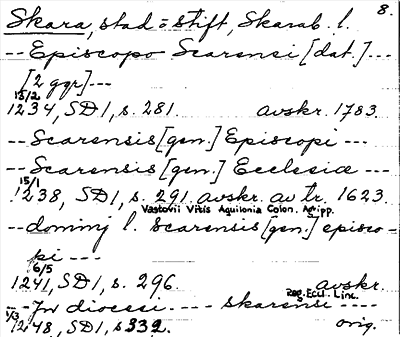 8.
Skara, stad o stift, Skarab. l.
-- Episcopo Scarensi [dat.] ---
[2 ggr] ---
15/2
1234, SD1, s. 281. avskr. 1783.
-- Scarensis [gen.] Episcopi ---
-- Scarensis [gen.] Ecclesiæ ---
15/1
1238, SD1, s. 291. avskr. av tr. 1623.
Vastovii Vitis Aquilonia Colon. Agripp.
-- dominj l. Scarensis [gen.] episco-
pi ---
6/5
1241, SD1, s. 296. avskr.
Reg. Eccl. Linc.
-- Jn diocesi ---- skarensi ----
1/3
1248, SD1, s 332. orig.